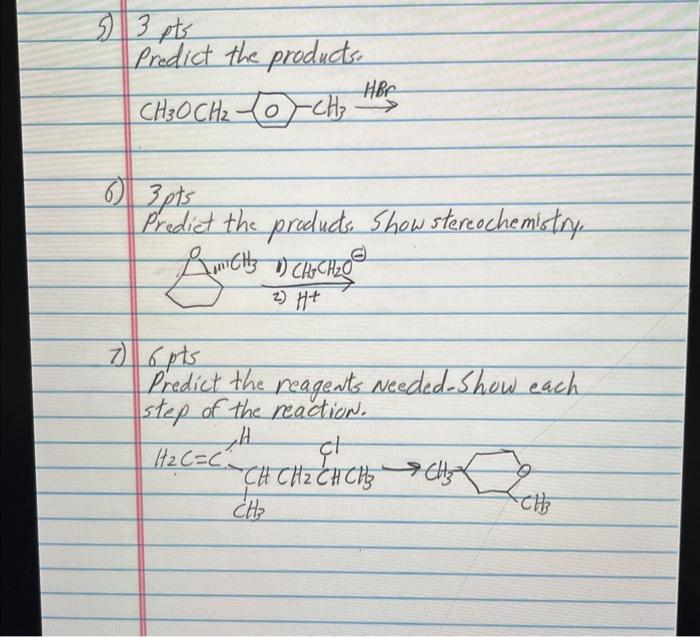 5) 3 pts
Predict the products.
CH3OCH2-⌬-CH3 HBr →
6) 3pts
Predict the products. Show stereochemistry.
O CH3 1) CH3CH2O⊖
2) H+
7) 6 pts
Predict the reagents needed-Show each
step of the reaction.
H Cl
H2C=C CH CH2 CH CH3 → CH3 O
CH3 CH3